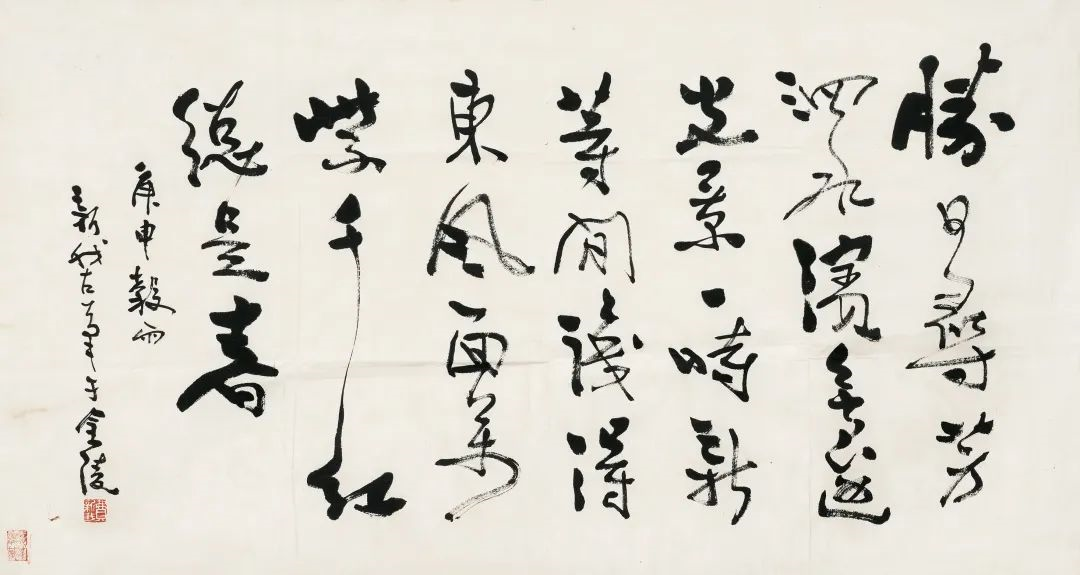 勝日尋芳
泗水濱無邊
光景一時新
等閒識得
東風面萬
紫千紅
總是春
庚申穀雨
新我左筆于金陵